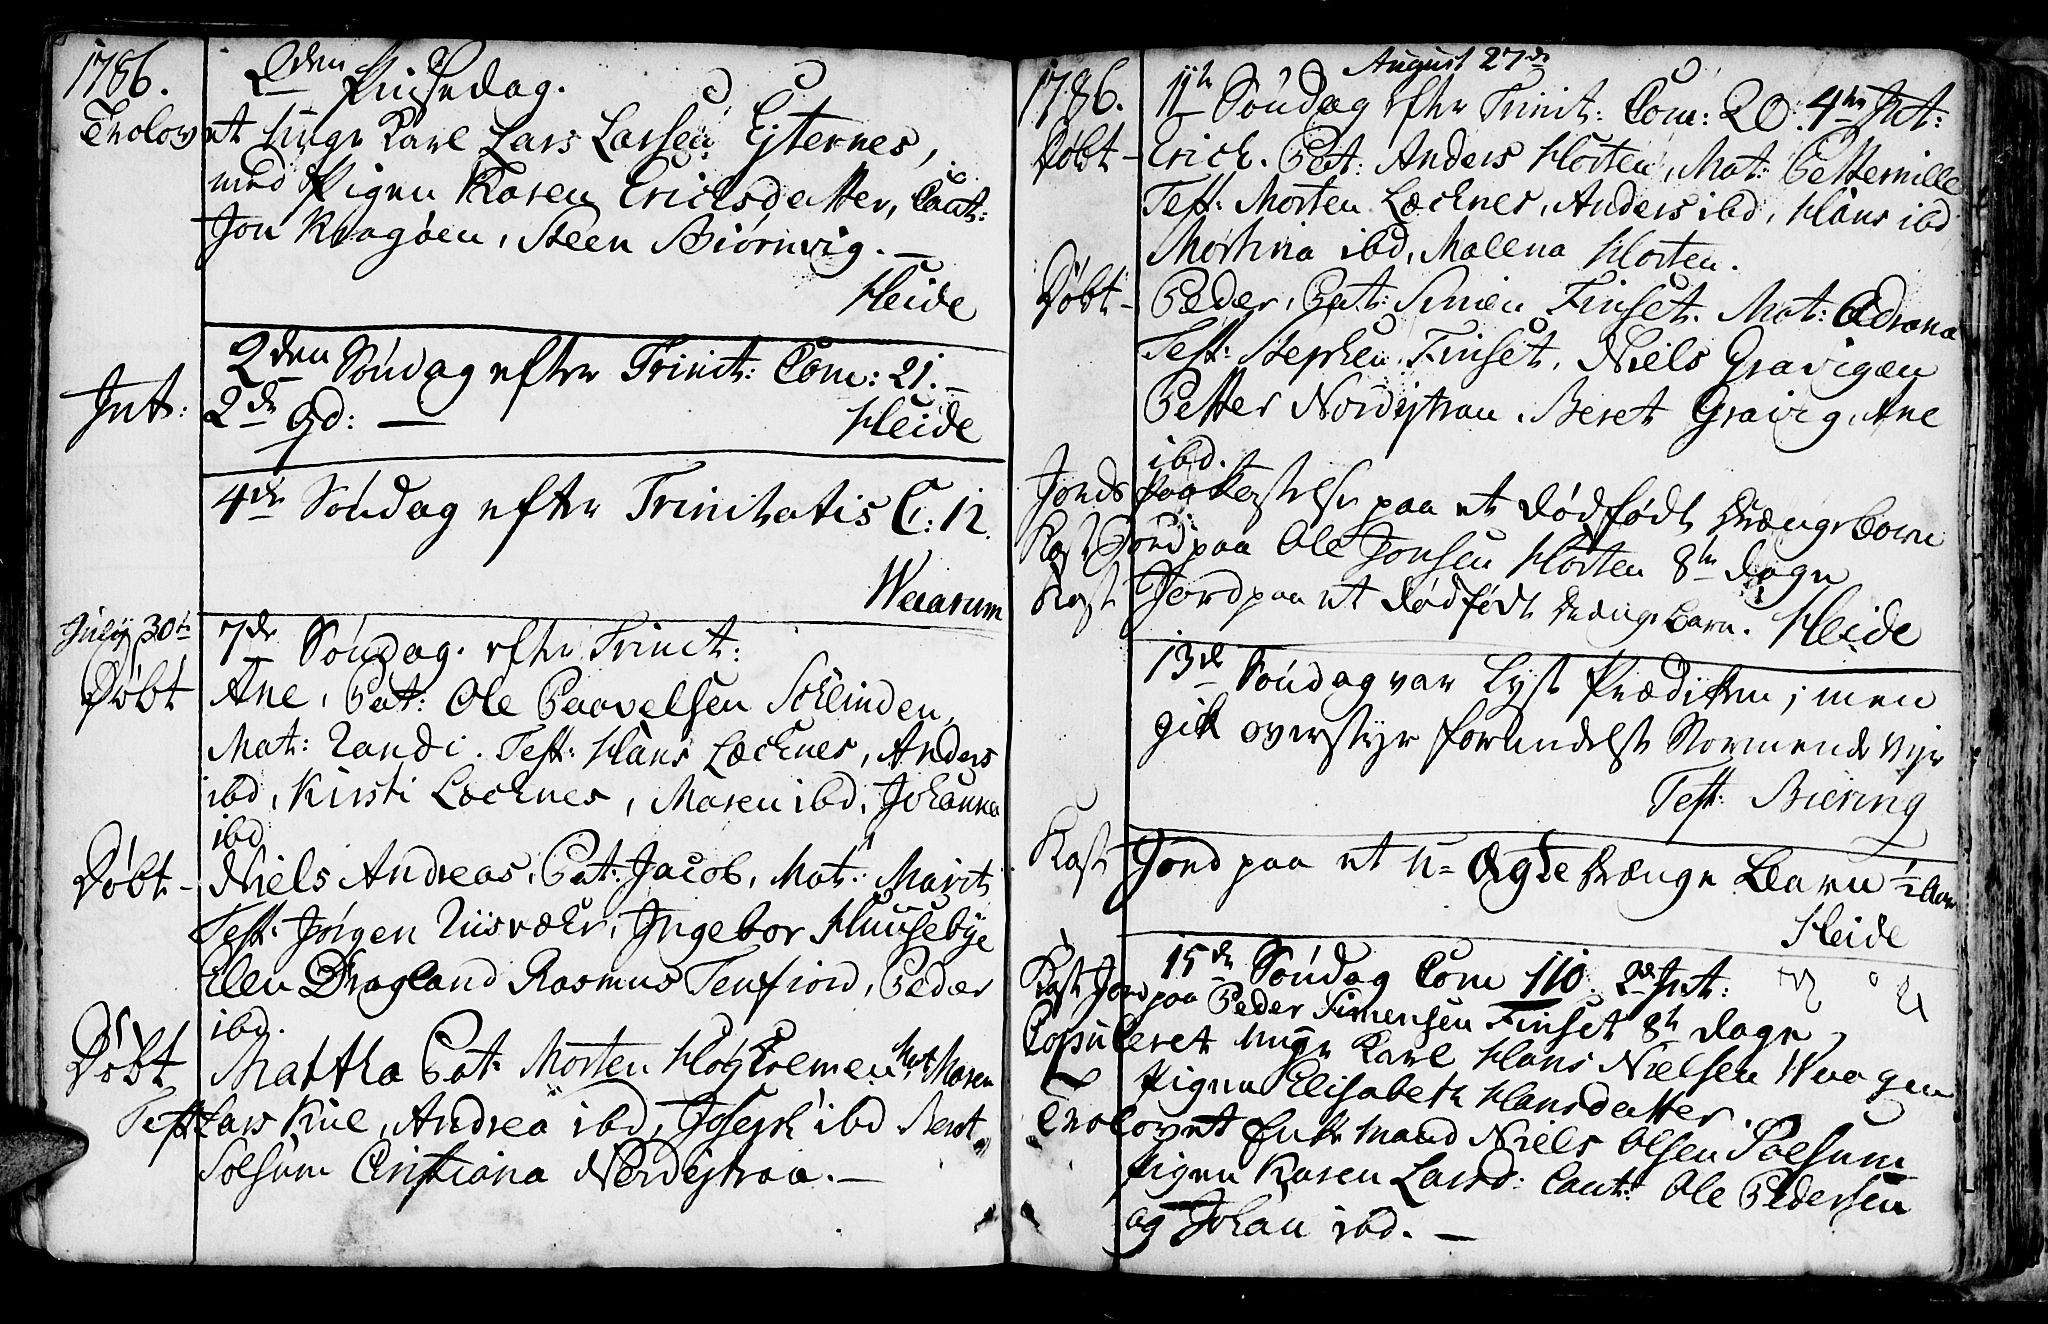 1786.
2den Pinsedag.
Trolovet unge Karl Lars Larsen Eyternes,
med Pigen Karen Ericksdatter, Caut:
Jon Kragøen, Steen Biørnvig. —
Heide
2den Søndag efter Trinit: Com: 21. —
Int: 2de Gd: —
Heide
4de Søndag efter Trinitatis C: 12.
Wearum
July 30te 7de Søndag efter Trinit:
Døbt Ane, Pat: Ole Paavelsen Schlinden,
Mat: Randi. Test: Hans Læcknes, Anders
ibd, Kirsti Læcknes, Maren ibd, Johanna
ibd
Døbt - Niels Andreas, Pat: Jacob, Mat: Marit
Test: Jørgen Riisvæhr, Ingebor Huusebye
Elen Dragland Rasmus Tenfiord, Peder
ibd.
Døbt Martha Pat: Morten Høgholmen, Mat: Maren
Test Lars Kiil, Andrea ibd, Joseph ibd Beret
Solsum Cristiana Nordistraa. —
August 27de
1786. 11te Søndag efter Trinit: Com: 20. 4de Int:
Døbt - Erich. Pat: Anders Horten, Mat: Petternille
Test: Morten Læcknes, Anders ibd, Hans ibd
Mortina ibd, Malena Horten.
Døbt - Peder, Pat: Simen Finset. Mat: Adriana
Test: Stephen Finset, Niels Gravigen
Petter Nordistrau. Beret Gravig, Ane
ibd.
Jords Paakastelse paa et dødfødt Drænge barn
Kast Jord paa Ole Jonsen Horten 8te dage
Kast Jord paa et dødfødt Drænge barn. Heide
13de Søndag var lyst Prædiken; men
gik overstyr formedelst Stormende Vejr
Test: Biering
Kast Jord paa et U= Ægte Drænge Barn ½ Aar
Heide
15de Søndag Com 110. 2de Int:
Kast Jord paa Peder Simensen Finset 8te dage,
Copuleret unge Karl Hans Nielsen Waagen
Pigen Elisabeth Hansdatter
Trolovet Enke Mand Niels Olsen Solsum
Pigen Karen Larsd: Caut: Ole Pedersen
og Johan ibd. —